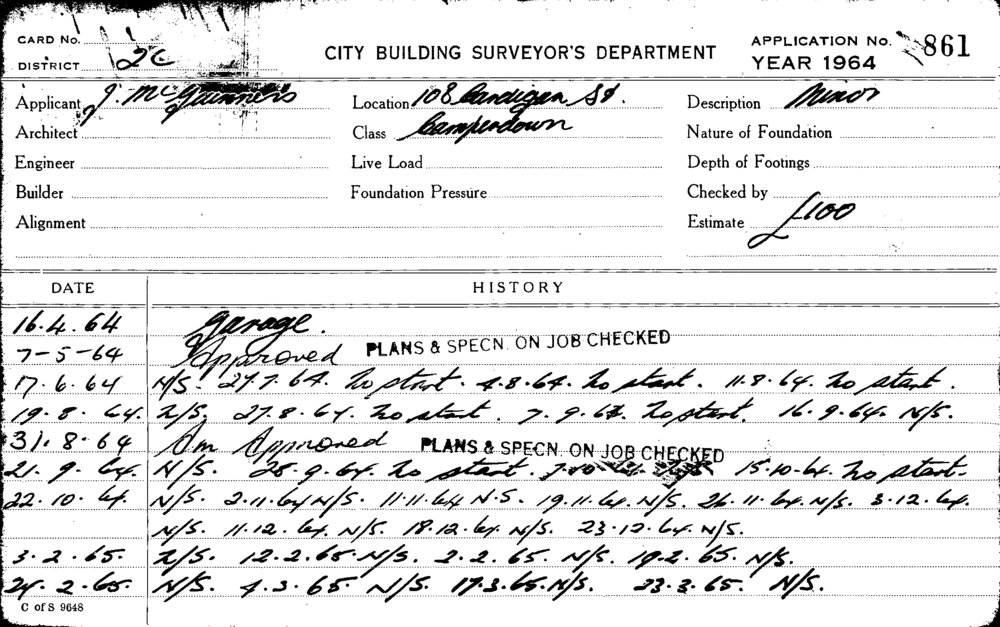 CARD No.
DISTRICT 2C
CITY BUILDING SURVEYOR'S DEPARTMENT
APPLICATION No. 861
YEAR 1964
Applicant J. McGuinness Location 108 Cardigan St. Description Minor
Architect Class Camperdown Nature of Foundation
Engineer Live Load Depth of Footings
Builder Foundation Pressure Checked by
Alignment Estimate £100
DATE HISTORY
16.4.64 Garage.
7-5-64 Approved PLANS & SPECN. ON JOB CHECKED
17.6.64 N/S. 27.7.64. No start. 4.8.64. No start. 11.8.64. No start.
19.8.64. N/S. 27.8.64. No start. 7.9.64. No start. 16.9.64. N/S.
31.8.64 Am Approved PLANS & SPECN. ON JOB CHECKED
21.9.64. N/S. 28.9.64. No start. 15.10.64. No start.
22.10.64. N/S. 2.11.64 N/S. 11.11.64 N.S. 19.11.64. N/S. 26.11.64. N/S. 3.12.64.
N/S. 11.12.64. N/S. 18.12.64. N/S. 23.12.64. N/S.
3.2.65. N/S. 12.2.65. N/S. 2.2.65. N/S. 19.2.65. N/S.
24.2.65. N/S. 4.3.65 N/S. 17.3.65. N/S. 23.3.65. N/S.
C of S 9648